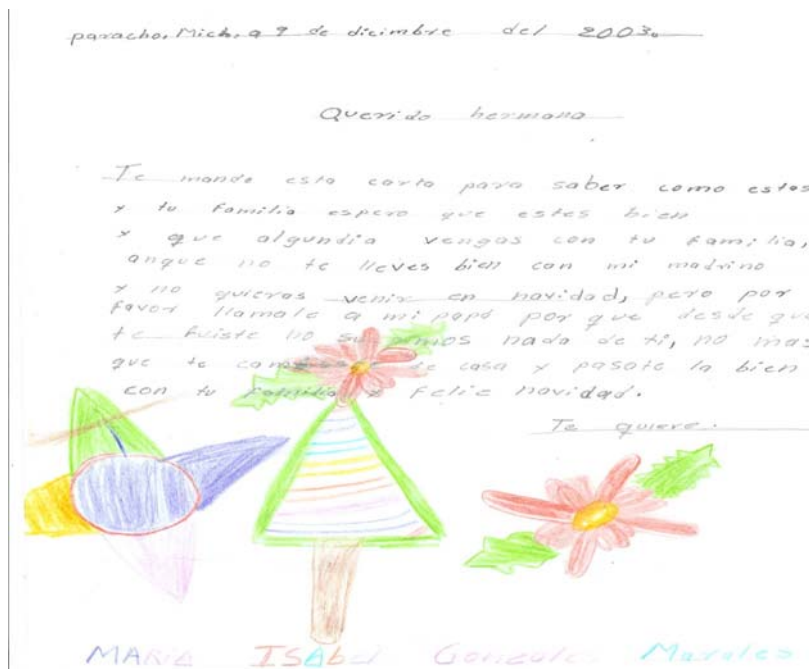 paracho, Mich, a 9 de dicimbre del 2003.
Querido hermano
Te mando esta carta para saber como estas
y tu familia espero que estes bien
y que algundia vengas con tu familia,
anque no te lleves bien con mi madrino
y no quieras venir en navidad, pero por
favor llamale a mi papá por que desde que
te fuiste no supimos nada de ti, no mas
que te cambiaste de casa y pasate la bien
con tu familia y felic navidad.
Te quiere.
MARIA ISAbel Gonzales Morales